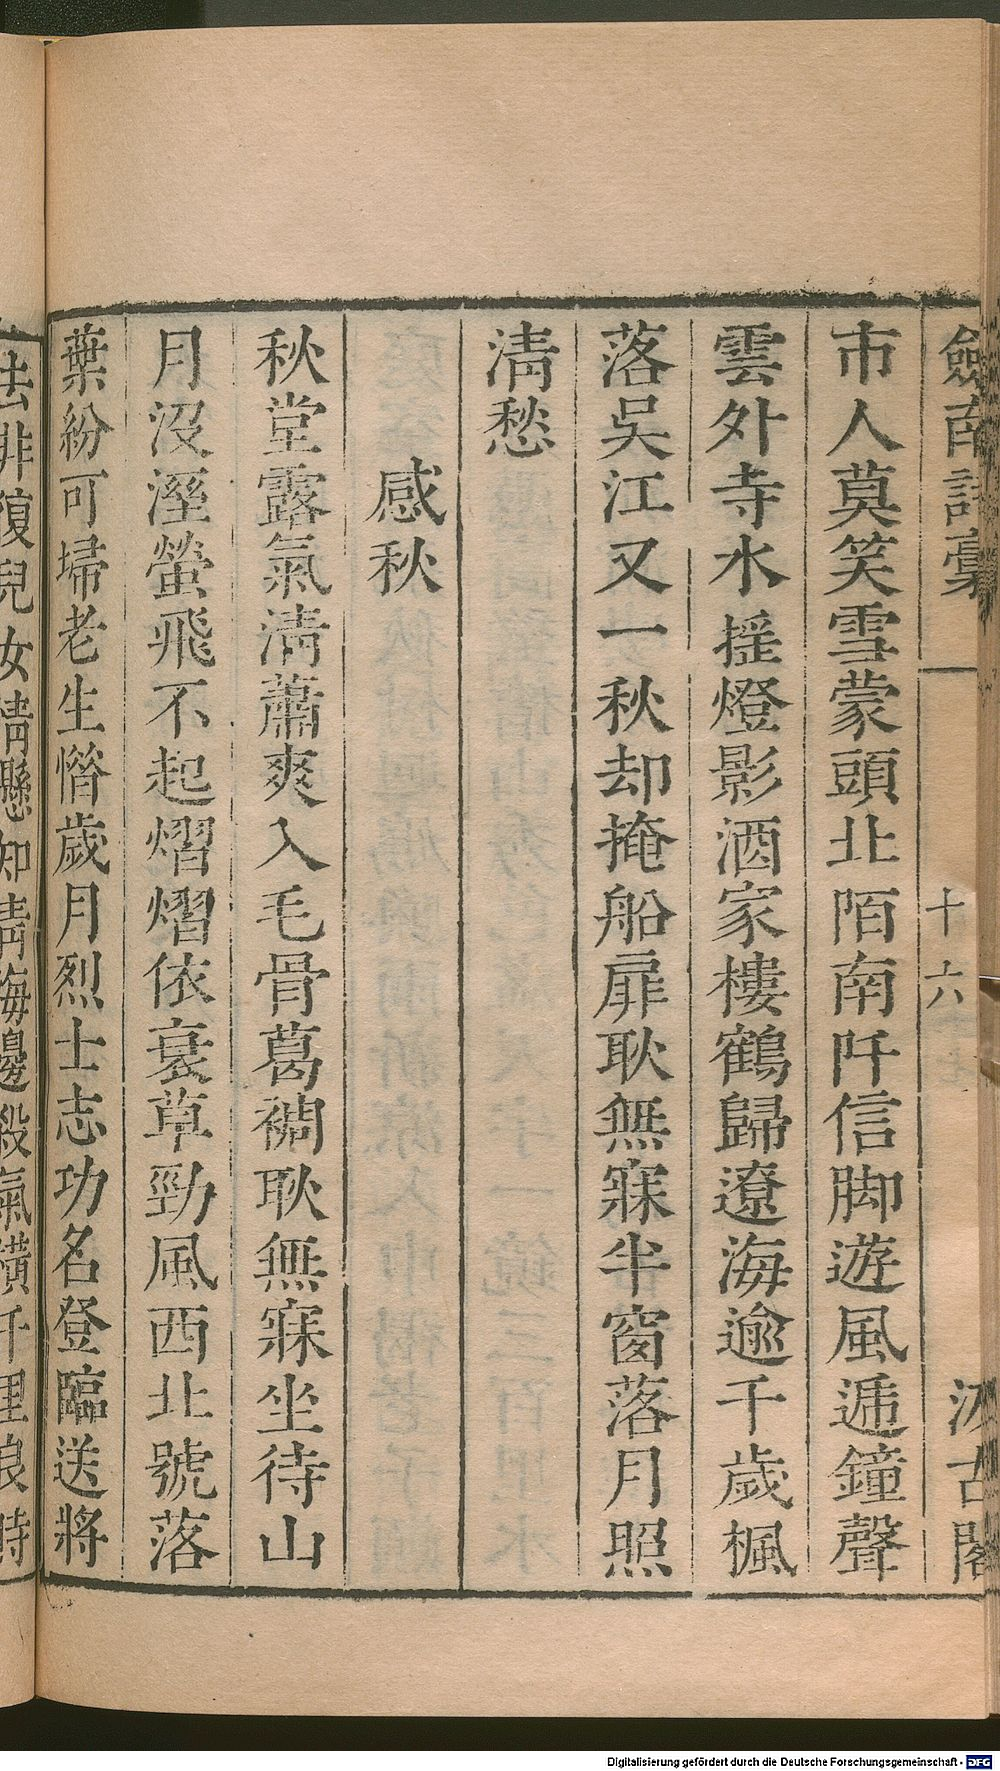 劍南詩稾
十六
汲古閣
市人莫笑雪蒙頭北陌南阡信脚遊風遞鐘聲
雲外寺水摇燈影酒家樓鶴歸遼海逾千歲楓
落吳江又一秋却掩船扉耿無寐半窗落月照
淸愁
感秋
秋堂露氣淸蕭爽入毛骨葛裯耿無寐坐待山
月沒溼螢飛不起熠熠依衰草勁風西北號落
葉紛可埽老生惜歲月烈士志功名登臨送將
去非復兒女情懸知靑海邊殺氣橫千里良時
Digitalisierung gefördert durch die Deutsche Forschungsgemeinschaft - DFG